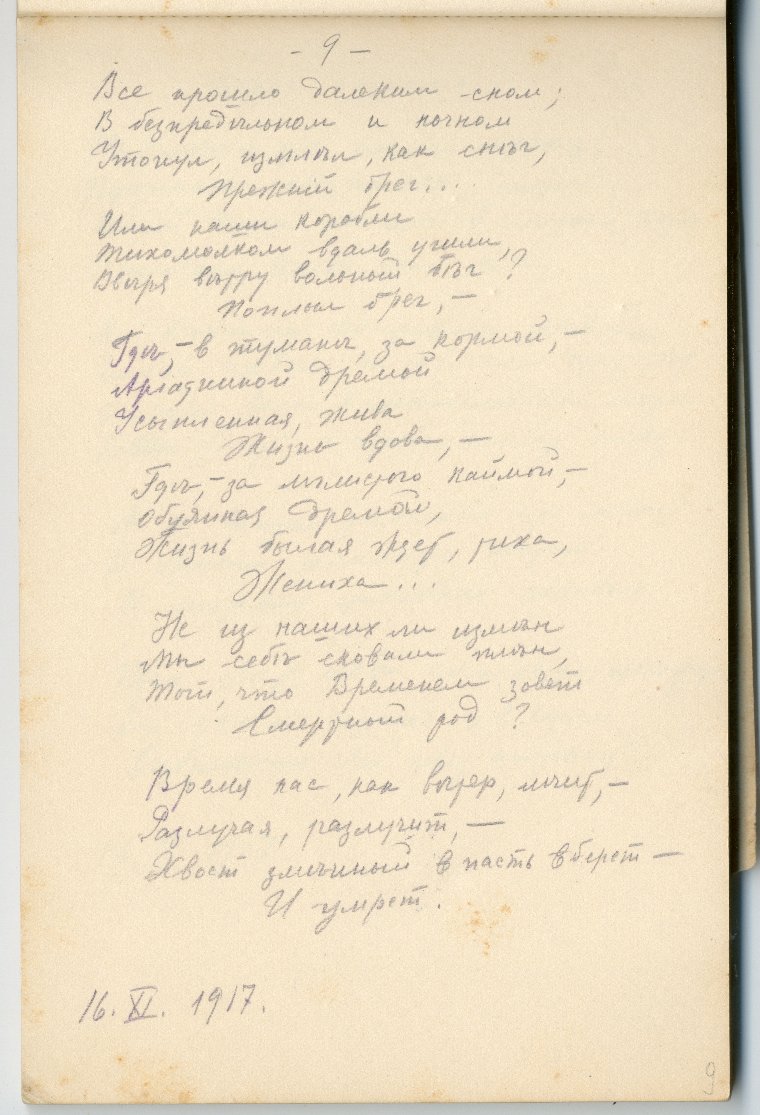 - 9 -
Все прошло далеким сном;
В безпредѣльном и ночном
Утонул, измлѣл, как снѣг,
Прежній брег...
Или наши корабли
Тихомолком вдаль ушли,
Ввѣря вѣтру вольный бѣг?
Поплыл брег, —
Гдѣ, — в туманѣ, за кормой, —
Аріадниной дремой
Усыпленная, жива
Жизнь вдова, —
Гдѣ, — за мглистою каймой, —
Обуянная дремой,
Жизнь былая ждет, тиха,
Жениха...
Не из наших ли измѣн
Мы себѣ сковали плѣн,
Тот, что Временем зовет
Смертный род?
Время нас, как вѣтер, мчит, —
Разлучая, разлучит, —
Хвост змѣиный в пасть вберет —
И умрет.
16. XI. 1917.
9